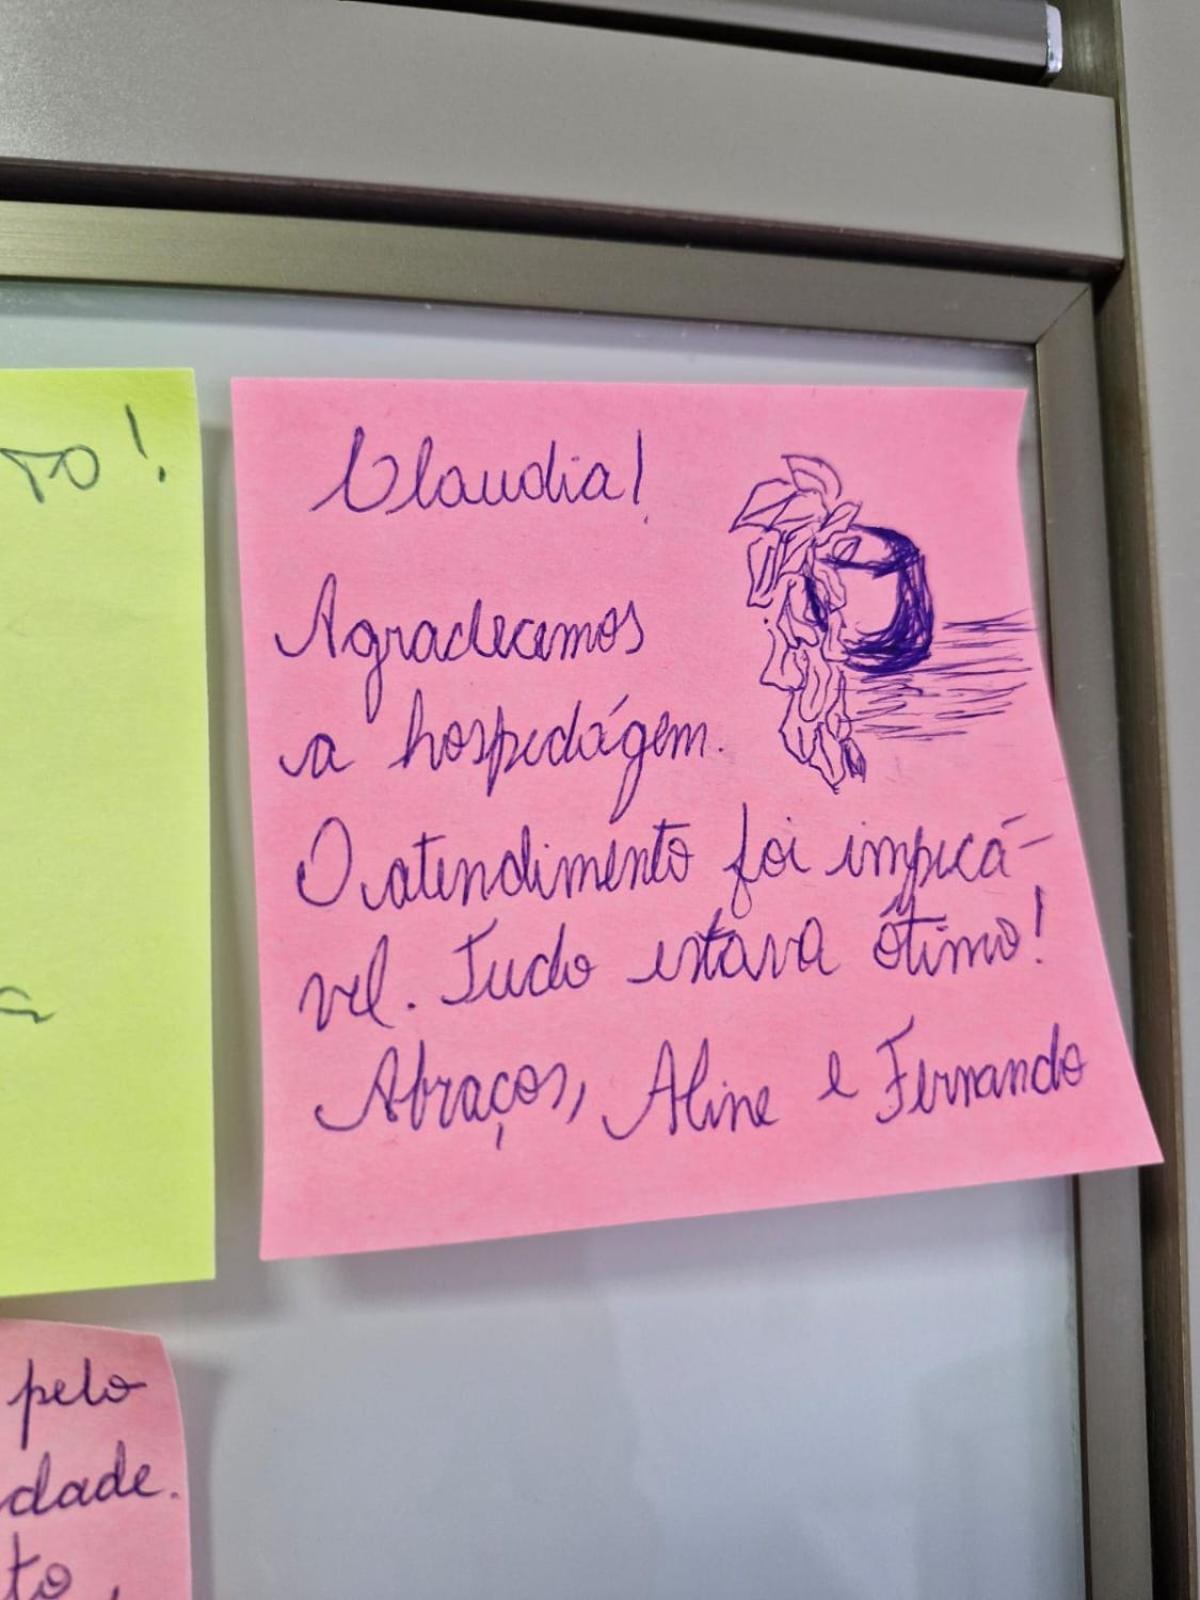 Claudia!
Agradecemos
a hospedágem.
O atendimento foi impecá-
vel. Tudo estava ótimo!
Abraços, Aline e Fernando
pelo
dade.
to,